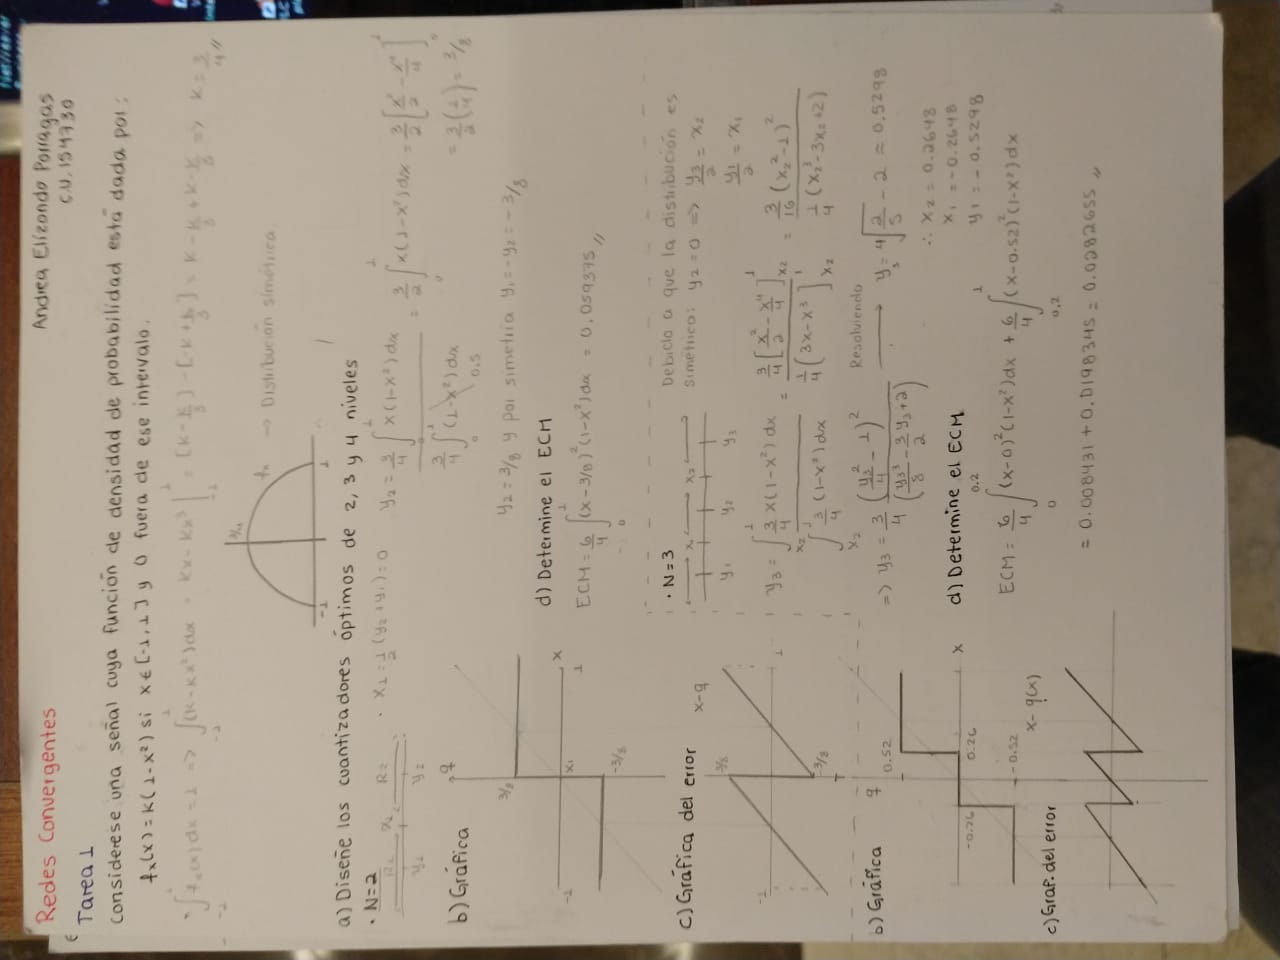 Redes Convergentes
Andrea Elizondo Porragas
C.U. 154730
Tarea 1
Considerese una señal cuya función de densidad de probabilidad está dada por:
fx(x) = K(1-x²) si x∈[-1,1] y 0 fuera de ese intervalo.
∫_{-1}^{1} fx(x) dx = 1 => ∫_{-1}^{1} (K-Kx²)dx = Kx - Kx³/3 |_{-1}^{1} = [K-K/3]-[-K+K/3] = K-K/3+K-K/3 => K = 3/4 //
3/4
fx → Distribución simétrica
-1 1
a) Diseñe los cuantizadores óptimos de 2, 3 y 4 niveles
· N=2
R1 x1 R2
y1 y2
· x1 = 1/2 (y2+y1) = 0
y2 = 3/4 ∫_0^1 x(1-x²)dx / 3/4 ∫_0^1 (1-x²)dx = 3/2 ∫_0^1 x(1-x²)dx = 3/2 [x²/2 - x⁴/4]_0^1
0.5
= 3/2 (1/4) = 3/8
y2 = 3/8 y por simetría y1 = -y2 = -3/8
b) Gráfica
q
3/8
-1 x1 1 x
-3/8
d) Determine el ECM
ECM = 6/4 ∫_0^1 (x-3/8)²(1-x²)dx = 0.059375 //
c) Gráfica del error
x-q
3/8
-1 1
-3/8
· N=3
x1 x2
y1 y2 y3
Debido a que la distribución es
simétrico: y2=0 => y3/2 = x2
y1/2 = x1
y3 = ∫_{x2}^{1} 3/4 x(1-x²)dx / ∫_{x2}^{1} 3/4 (1-x²)dx = 3/4 [x²/2 - x⁴/4]_{x2}^{1} / 1/4 (3x-x³]_{x2}^{1} = 3/16 (x2²-1)² / 1/4 (x2³-3x2+2)
=> y3 = 3/4 (y3²/4 - 1)² / (y3³/8 - 3/2 y3+2) Resolviendo → y3 = 4√(2/5) - 2 ≈ 0.5298
∴ x2 = 0.2648
x1 = -0.2648
y1 = -0.5298
b) Gráfica
q
0.52
-0.26 0.26 x
-0.52
d) Determine el ECM
ECM = 6/4 ∫_0^{0.2} (x-0)²(1-x²)dx + 6/4 ∫_{0.2}^{1} (x-0.52)²(1-x²)dx
= 0.008431 + 0.0198345 = 0.0282655 //
c) Graf. del error
x-q(x)